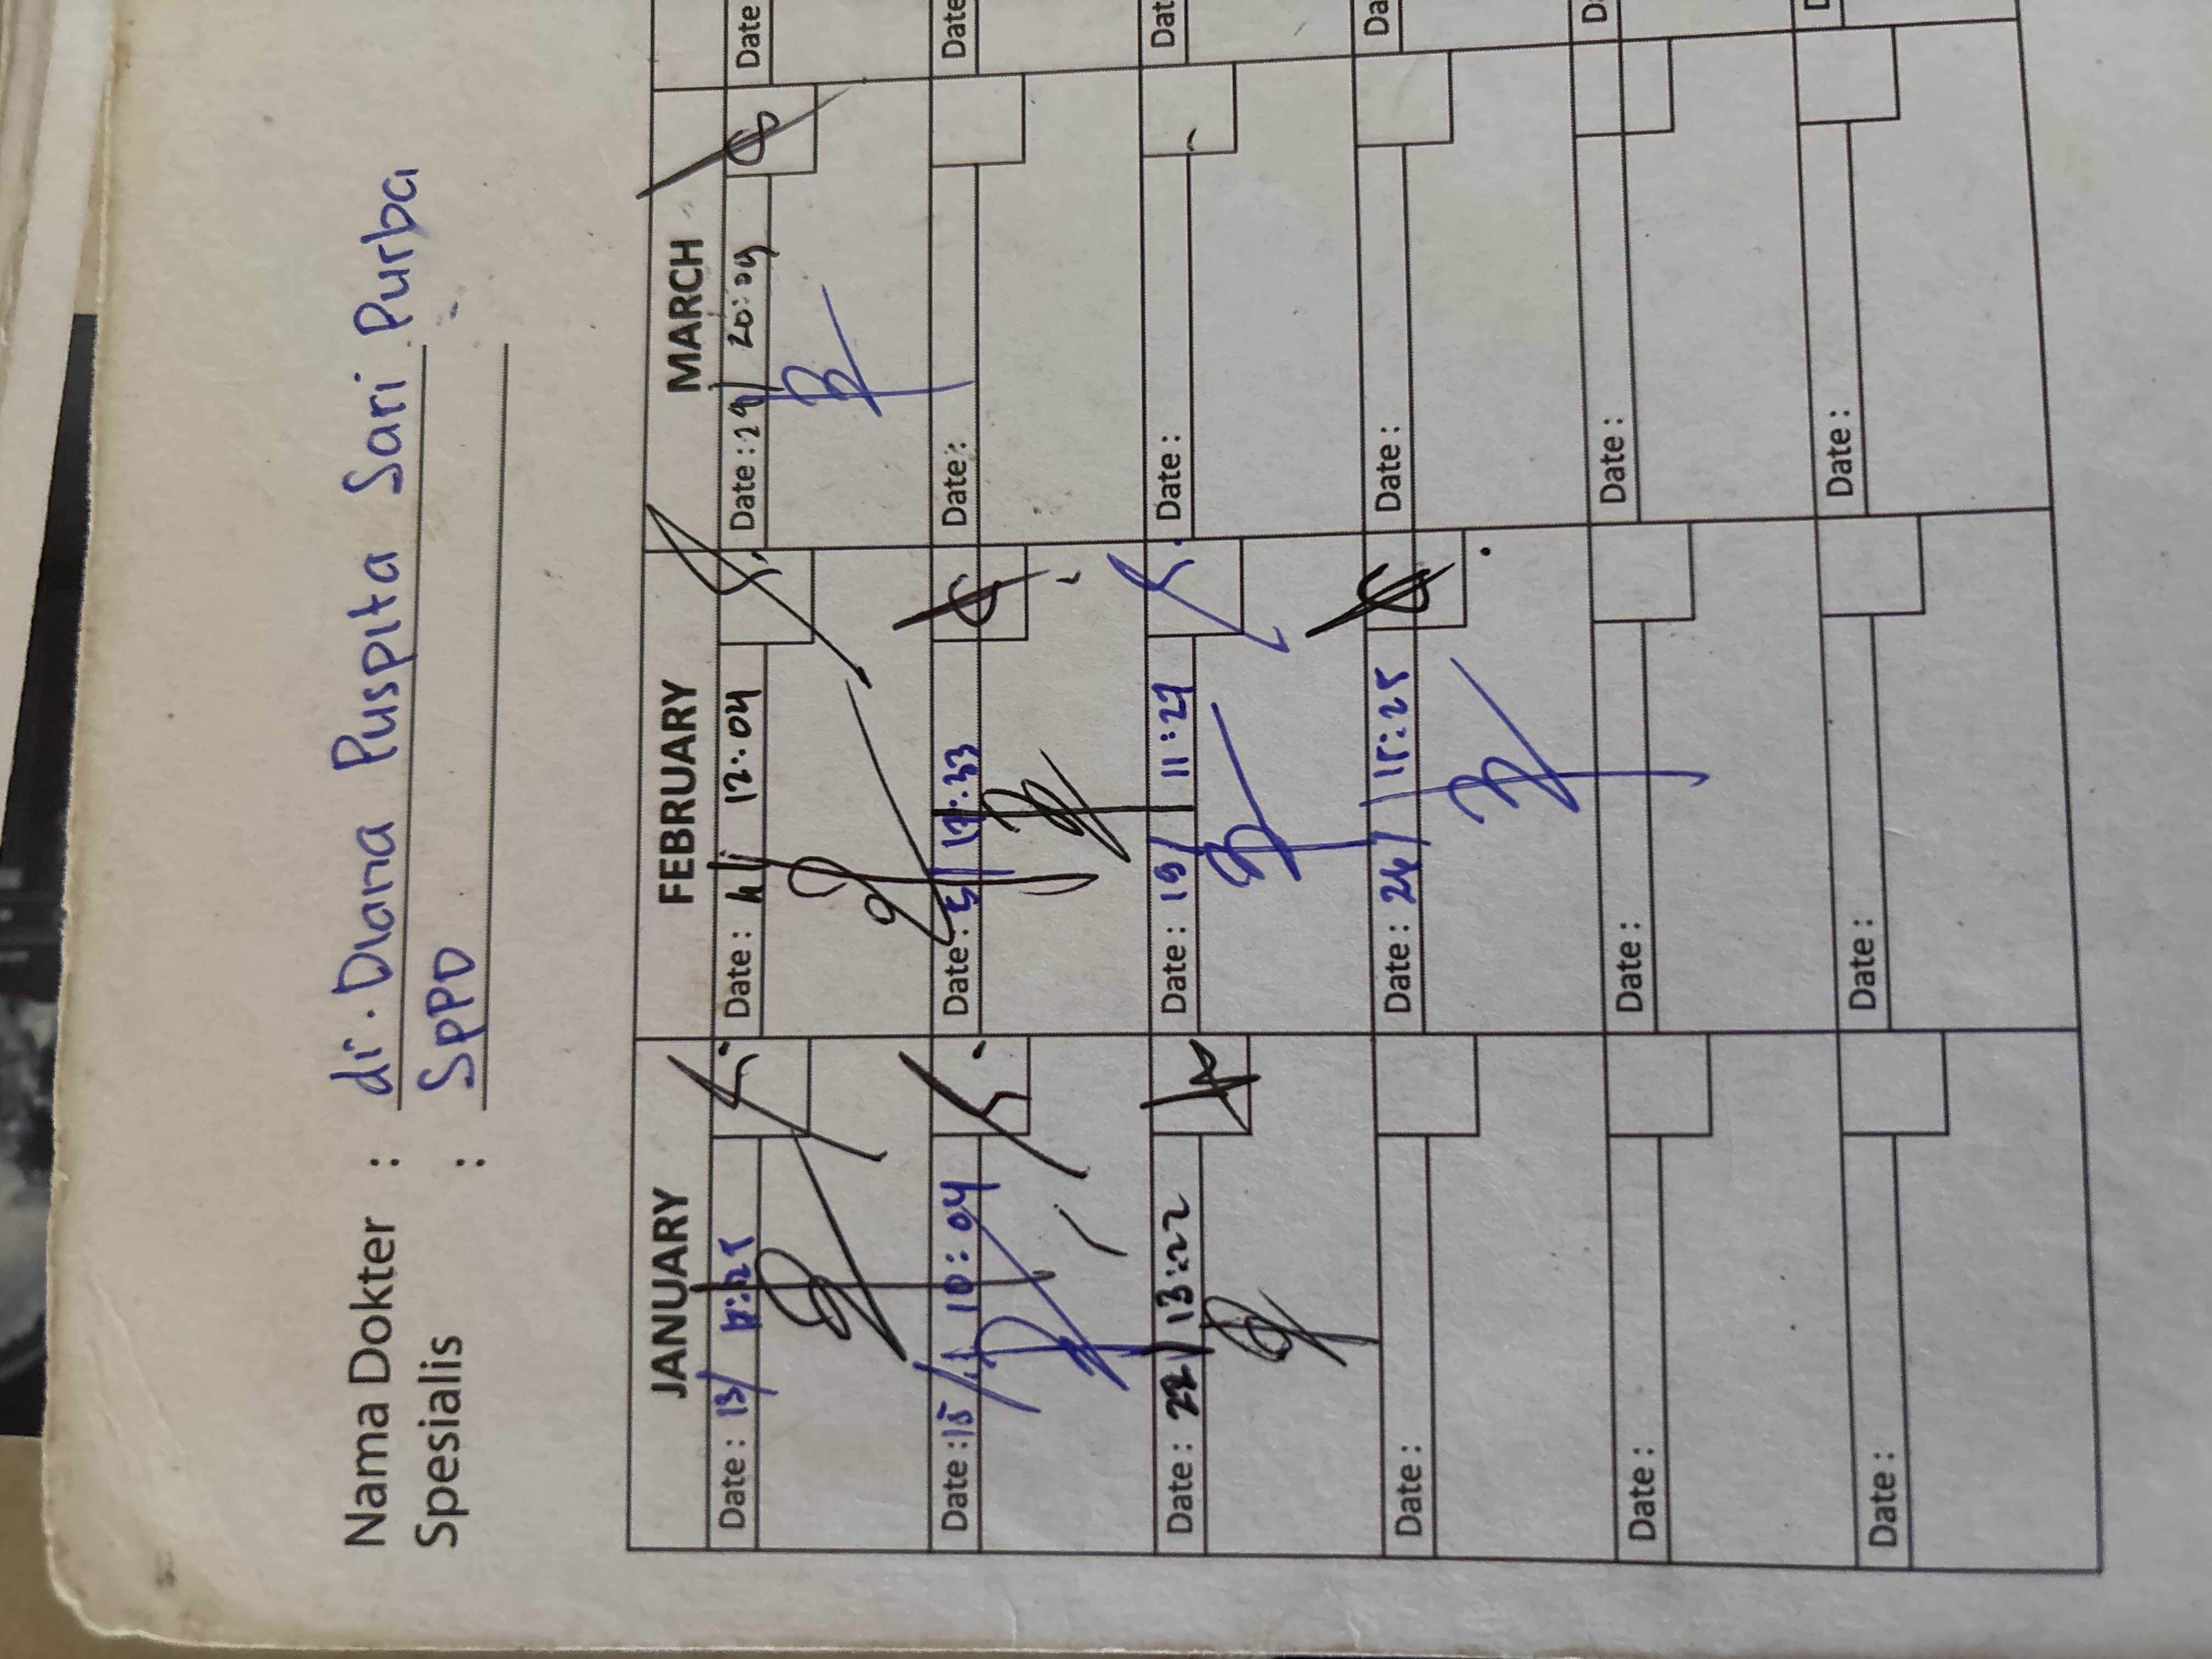 Nama Dokter : dr. Diana Puspita Sari Purba
Spesialis : SpPD
JANUARY FEBRUARY MARCH
Date : 13/ Date : 12:04 Date : 29/ 20:09 Date
Date : 15/1 10:04 Date : 5/ 17:33 Date : Date
Date : 22/ 13:22 Date : 19/ 11:27 Date : Dat
Date : Date : 24/ 15:25 Date : Da
Date : Date : Date : D
Date : Date : Date : D